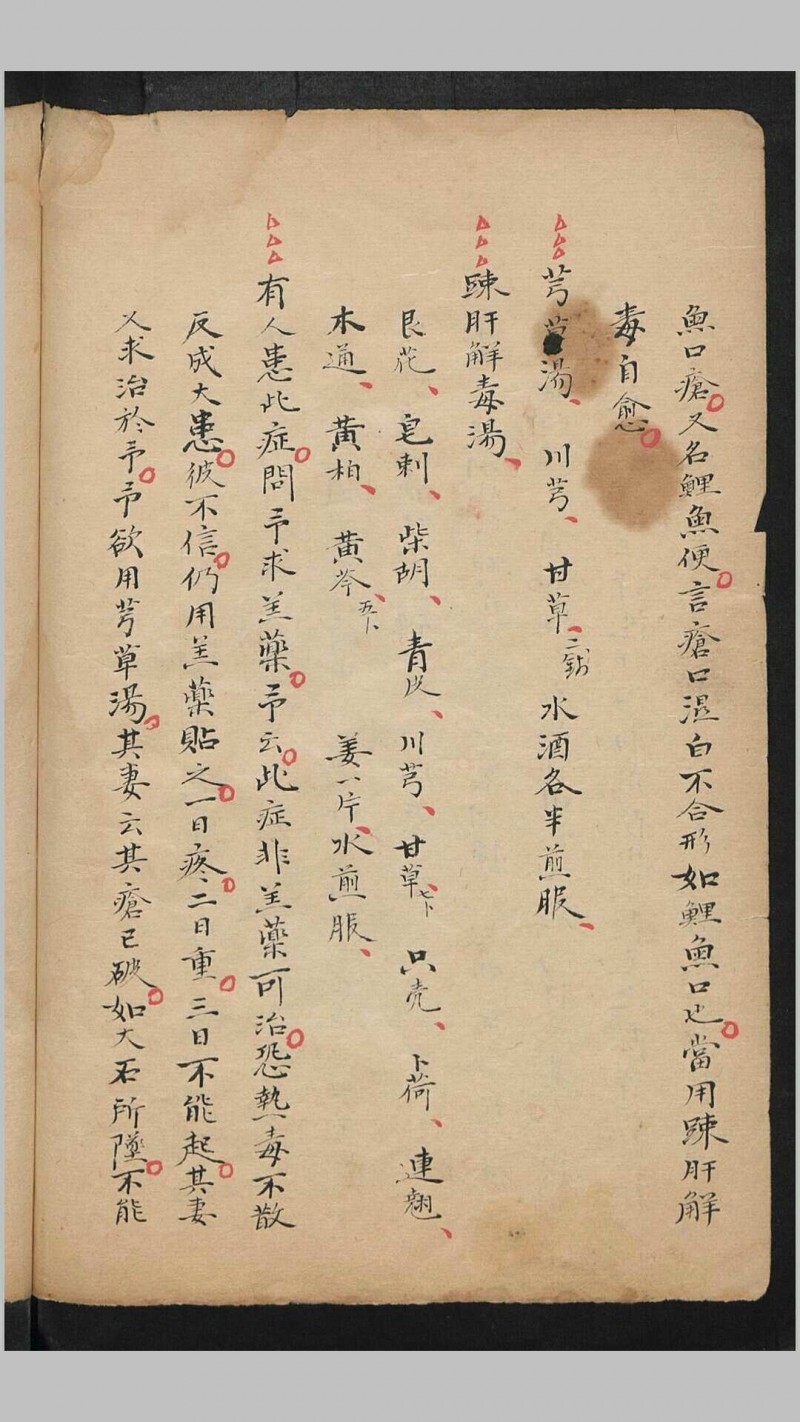 魚口瘡又名鯉魚便言瘡口湿白不合形如鯉魚口也當用踈肝解
毒自愈
芎草湯、川芎、甘草、二錢水酒各半煎服、
踈肝解毒湯、
艮花、皂刺、柴胡、青皮、川芎、甘草、七卜只壳、卜荷、連翹、
木通、黃柏、黃芩、五卜姜一片、水煎服、
有人患此症問予求羔藥予云此症非羔藥可治恐熱毒不散
反成大患彼不信仍用羔藥貼之一日疼二日重三日不能起其妻
又求治於予予欲用芎草湯其妻云其瘡已破如大石所墜不能